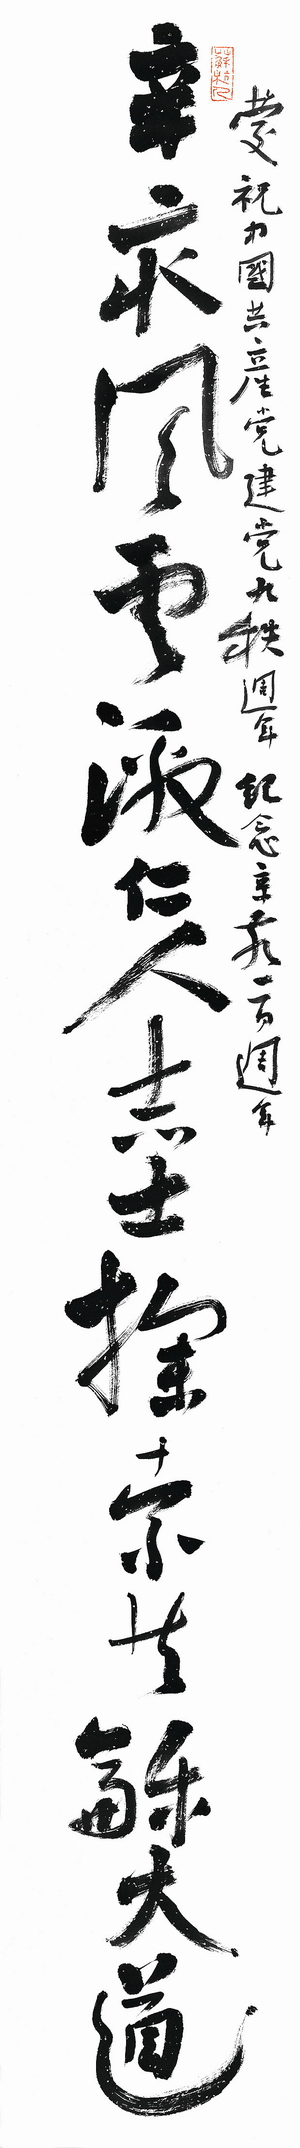 慶祝中國共產党建党九秩週年 紀念辛亥一百週年
辛亥風雲激仁人志士探索共龢大道